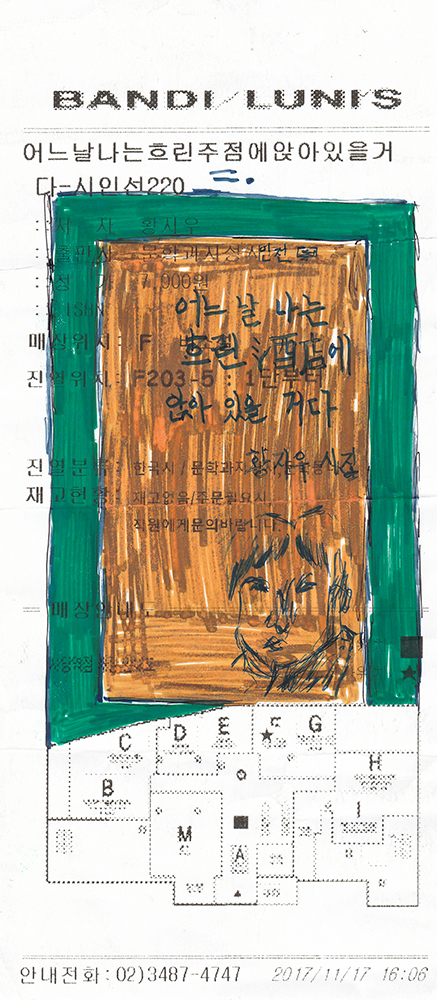 BANDI/LUNI'S
어느날나는흐린주점에앉아있을거
다-시인선220
: 저 자 황지우
: 출판사 문학과지성사
: 정 가 7,000원
: ISBN
어느 날 나는
흐린 酒店에
앉아 있을 거다
황지우 시집
매장위치: F
진열위치: F203-5 : 1
진열분류: 한국시 / 문학과지
재고현황: 재고없음/주문필요시
직원에게문의바랍니다.
매장안내
C D E F G
B H
M A I
안내전화:02)3487-4747 2017/11/17 16:06